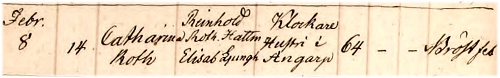 Febr.
8 14 Catharina Roth Reinhold Roth. Hattm Elisab Ljungh Klockare Hustru i Angarp 64 - - Bröstfeb